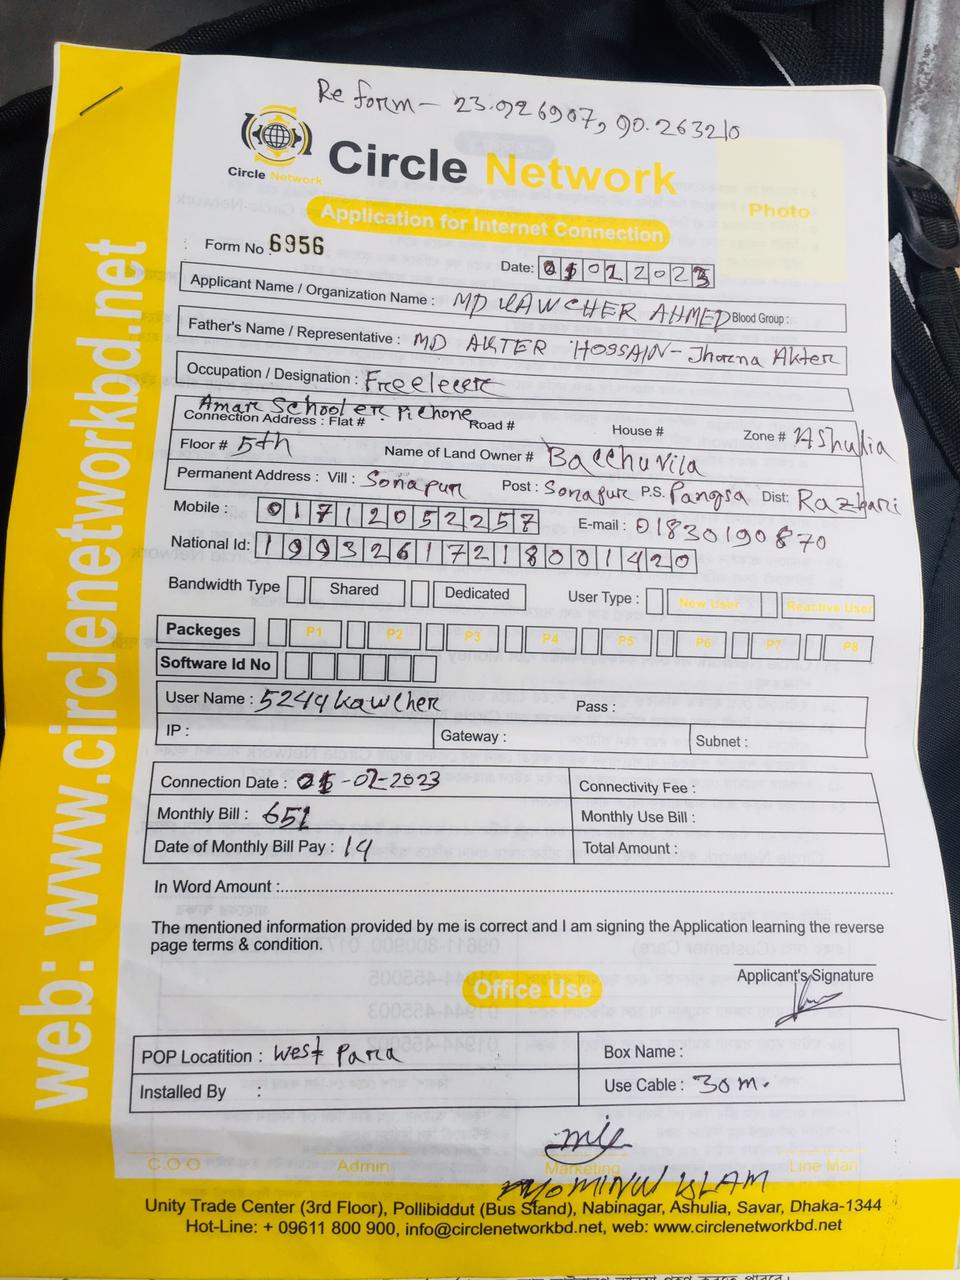 Re form - 23.926907, 90.263210
Circle Network
Circle Network
Photo
Application for Internet Connection
Form No. 6956
Date: 01 01 2023
Applicant Name / Organization Name : MD KAWCHER AHMED Blood Group :
Father's Name / Representative : MD AKTER HOSSAIN - Jhorna Akter
Occupation / Designation : Freelecer
Amar Schooler Pichone
Connection Address : Flat # Road # House # Zone # Ashulia
Floor # 5th Name of Land Owner # Bacchu Vila
Permanent Address : Vill : Sonapur Post : Sonapur P.S. Pangsa Dist: Razbari
Mobile : 01712052257 E-mail : 01830190870
National Id: 19932617218001420
Bandwidth Type Shared Dedicated User Type : New User Reactive User
Packeges P1 P2 P3 P4 P5 P6 P7 P8
Software Id No
User Name : 5249kawcher Pass :
IP : Gateway : Subnet :
Connection Date : 01-02-2023 Connectivity Fee :
Monthly Bill : 651 Monthly Use Bill :
Date of Monthly Bill Pay : 14 Total Amount :
In Word Amount :
The mentioned information provided by me is correct and I am signing the Application learning the reverse
page terms & condition.
Applicant's Signature
Office Use
POP Locatition : West Para Box Name :
Installed By : Use Cable : 30 m.
C.O.O Admin Marketing Line Man
MOMINUL ISLAM
Unity Trade Center (3rd Floor), Pollibiddut (Bus Stand), Nabinagar, Ashulia, Savar, Dhaka-1344
Hot-Line: + 09611 800 900, info@circlenetworkbd.net, web: www.circlenetworkbd.net
web: www.circlenetworkbd.net